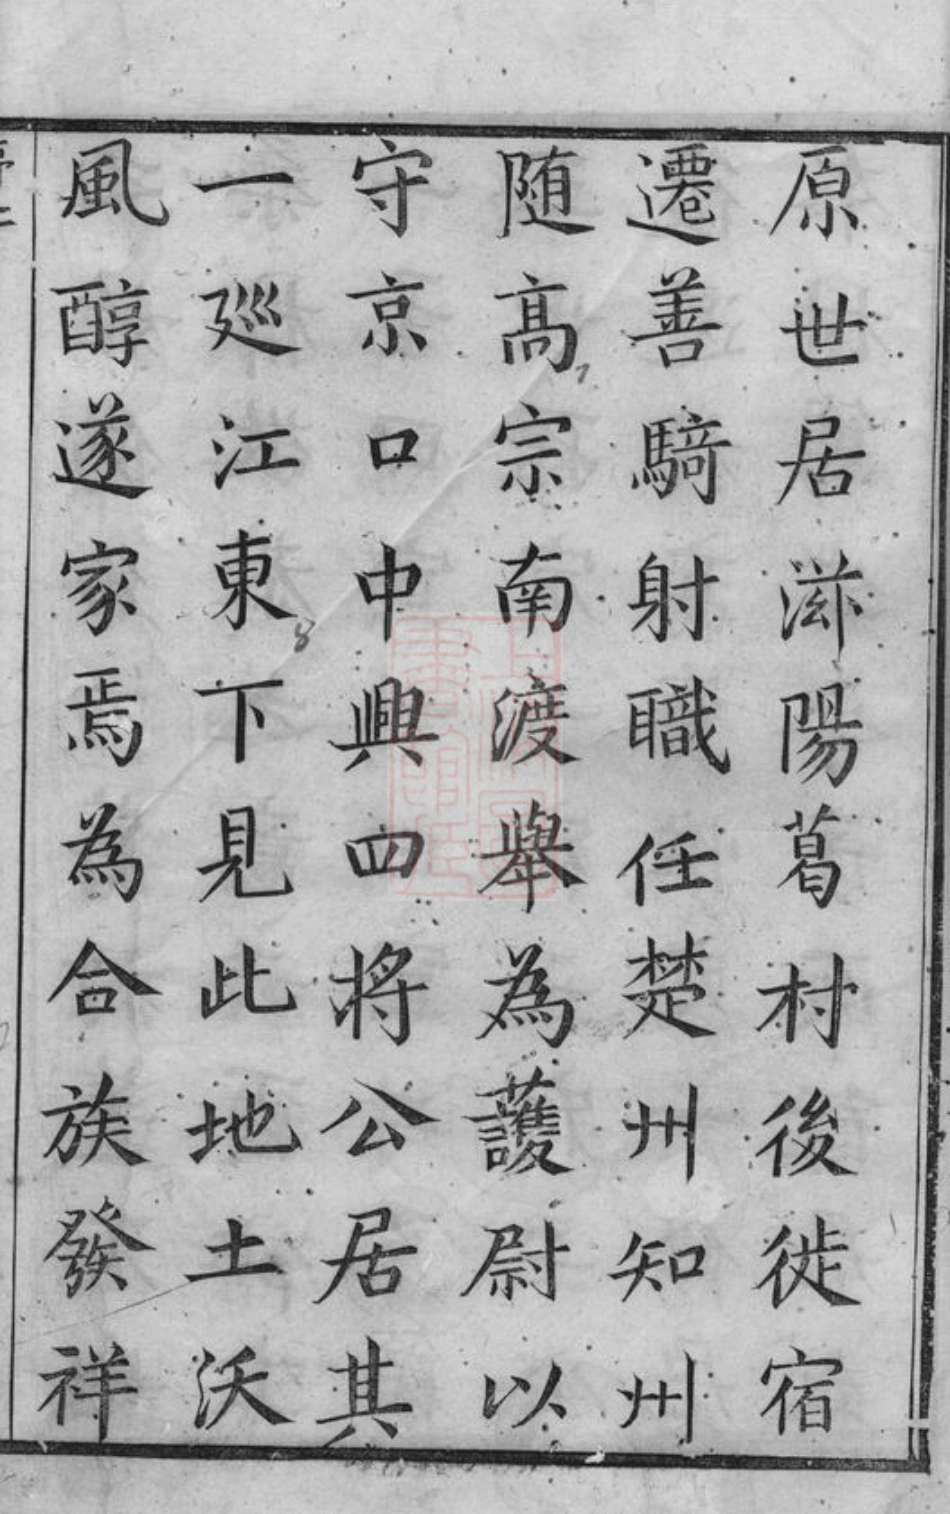 原世居滋陽葛村後徙宿
遷善騎射職任楚州知州
随髙宗南渡舉為護尉以
守京口中興四将公居其
一廵江東下見此地土沃
風醇遂家焉為合族發祥